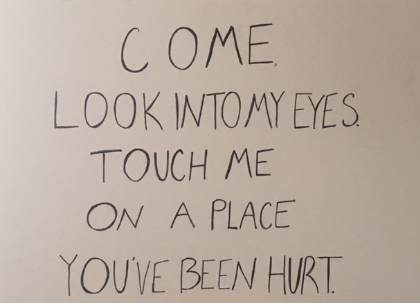 COME.
LOOK INTO MY EYES.
TOUCH ME
ON A PLACE
YOU'VE BEEN HURT.